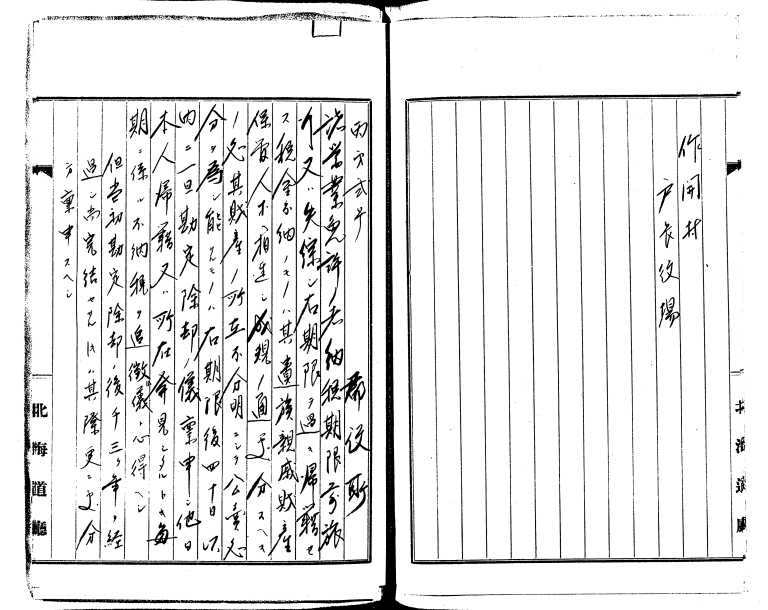 作開村
戸長役場
北海道廳
丙方弐号
郡役所
諸営業免許ノ者納税期限前旅
行又ハ失綜シ右期限ヲ過キ帰籍セ
ス税金不納ノモノハ其貴族親戚財産
保管人ホ相達シ成規ノ通処分スヘキ
ノ処其財産ノ所在不分明ニシテ公売処
分ヲ為シ能ハスモノハ右期限後四十日以
内ニ一旦勘定除却ノ儀稟申シ他日
本人帰籍又ハ所在発見シタルトキ毎
期ニ係ル不納税ヲ追徴儀ト心得ヘシ
但当初勘定除却ノ後千三ヶ年ヲ経
過シ尚完結セサルトキハ其際更ニ処分
方稟申スヘシ
北海道廳